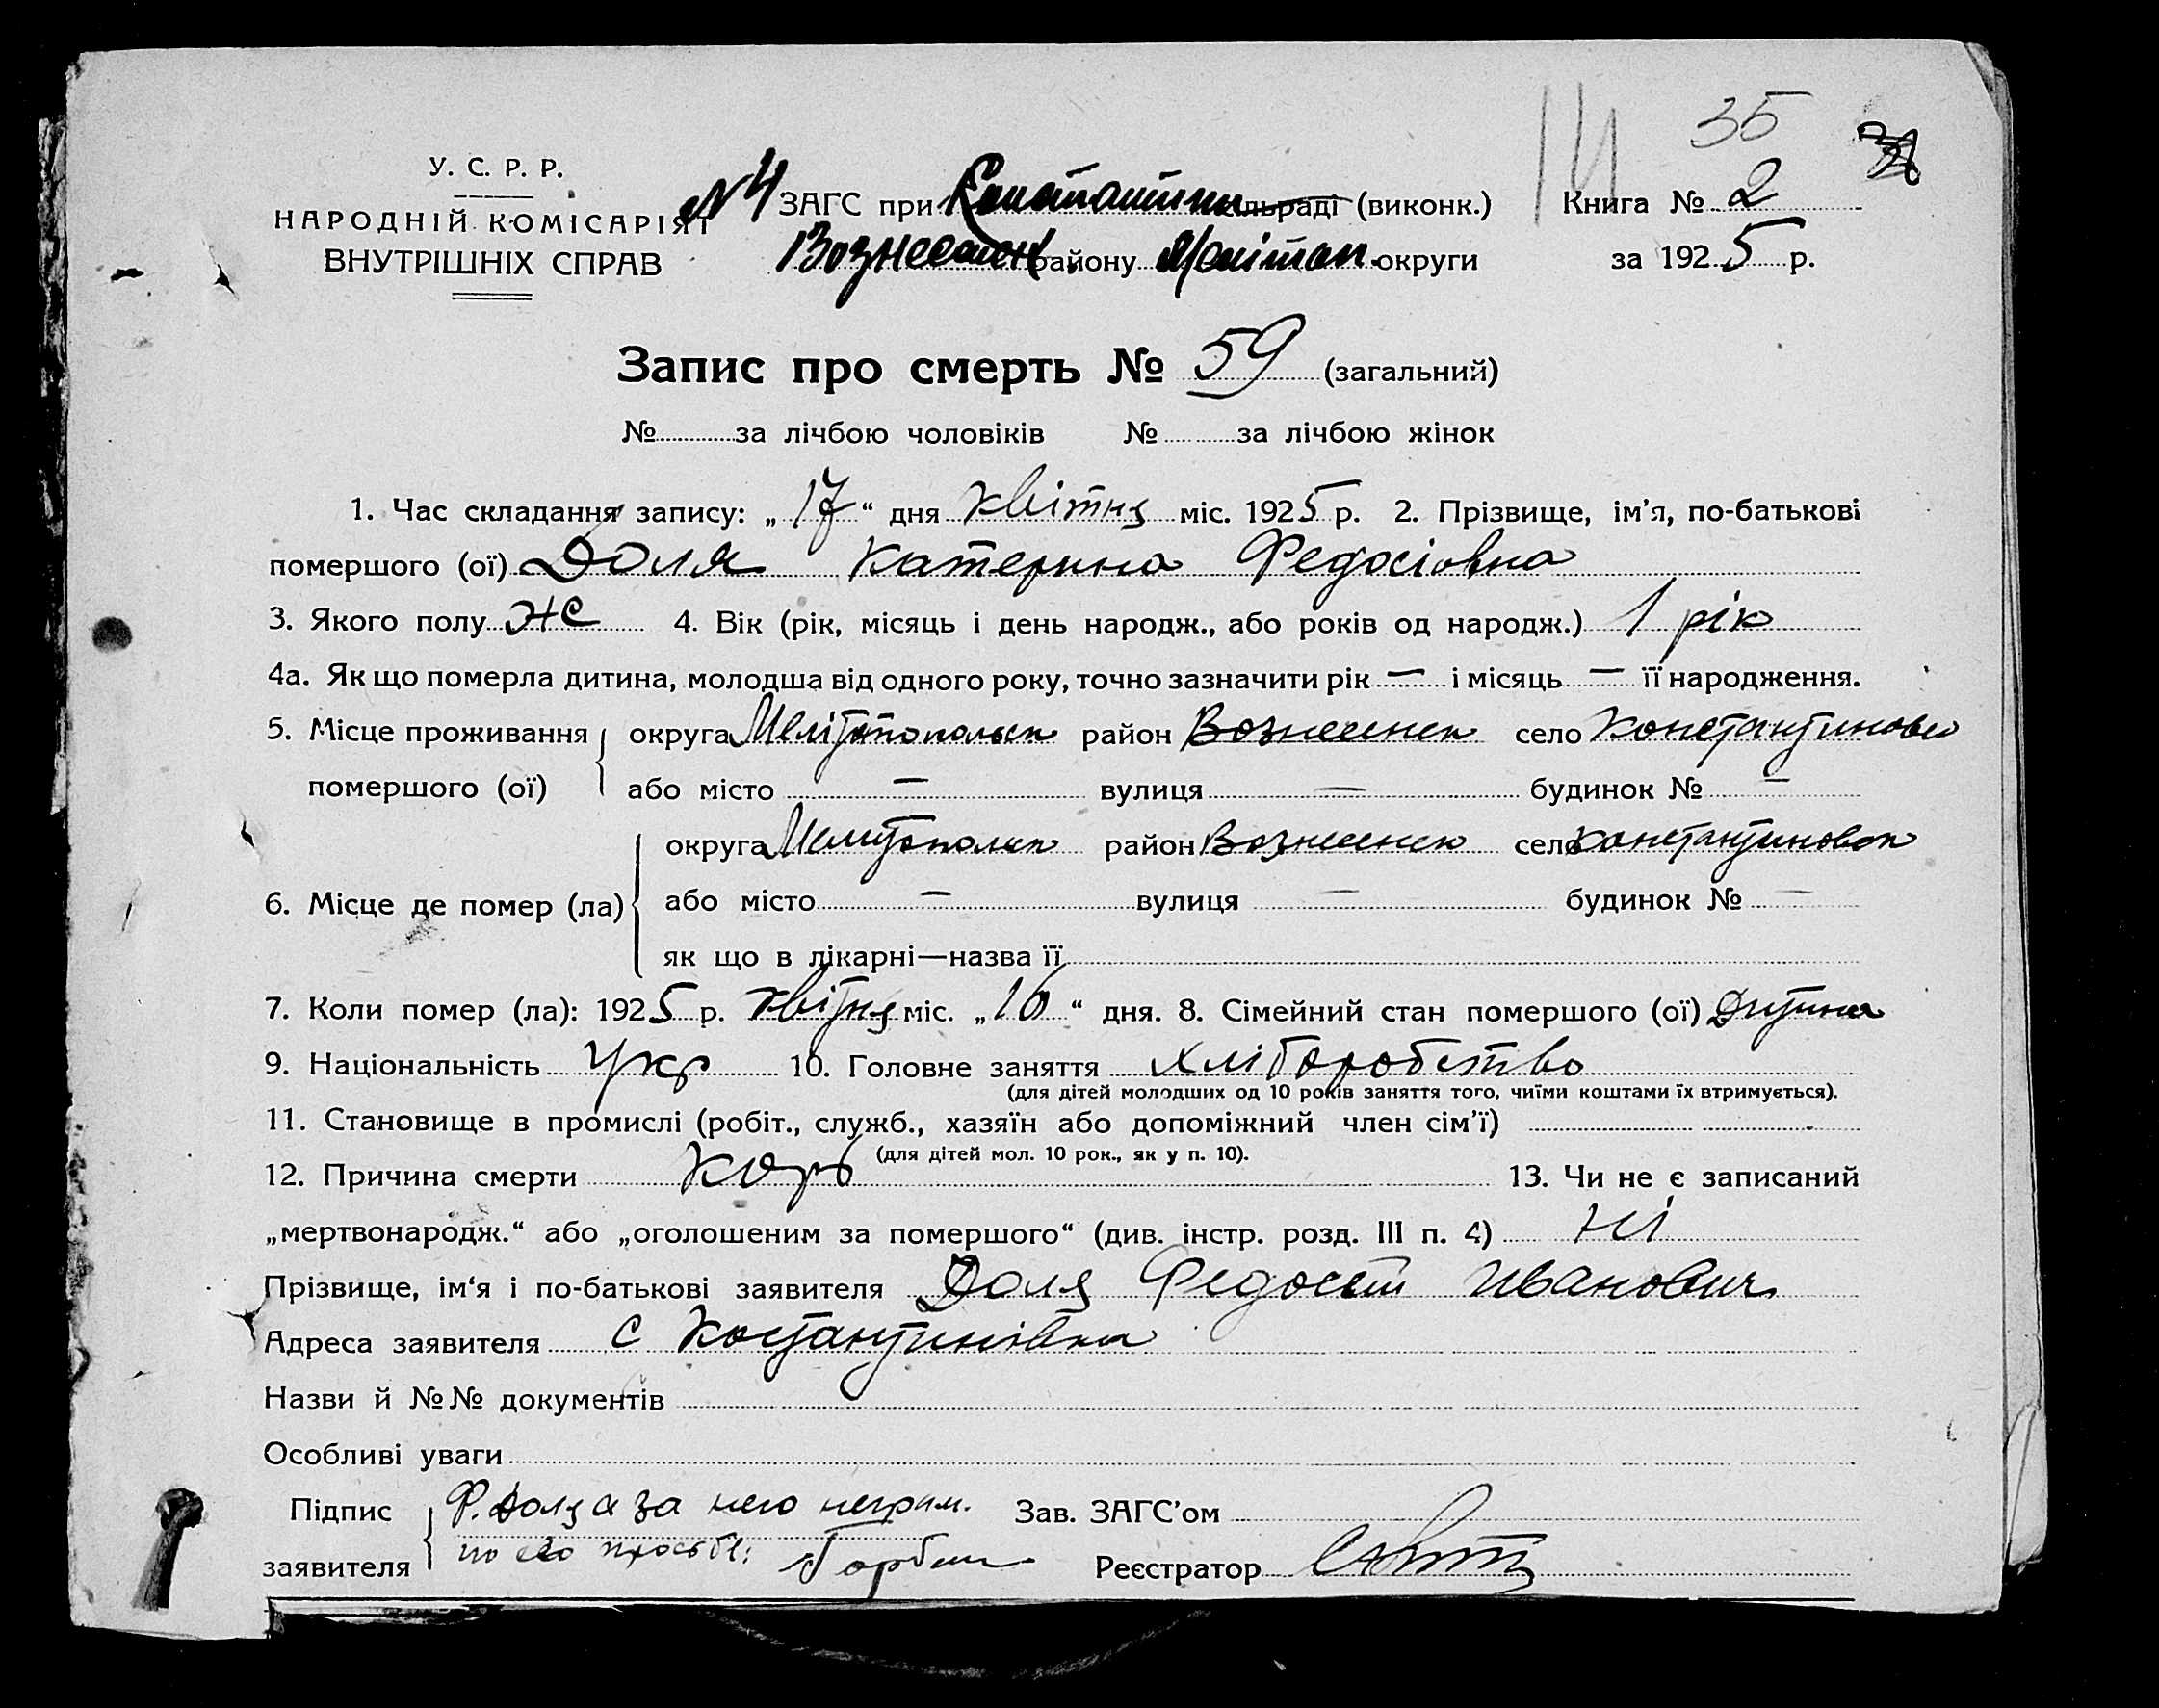 35
14
У. С. Р. Р.
НАРОДНІЙ КОМІСАРІЯТ
ВНУТРІШНІХ СПРАВ
№ 4 ЗАГС при Константин сільраді (виконк.) Книга № 2
Вознесенск району Мелітоп. округи за 1925 р.
Запис про смерть № 59 (загальний)
№ за лічбою чоловіків № за лічбою жінок
1. Час складання запису: „ 17 “ дня Квітня міс. 1925 р. 2. Прізвище, ім’я, по-батькові
помершого (ої) Доля Катерина Федосіовна
3. Якого полу же 4. Вік (рік, місяць і день народж., або років од народж.) 1 рік
4а. Як що померла дитина, молодша від одного року, точно зазначити рік — і місяць — її народження.
5. Місце проживання округа Мелітопольск район Вознесенск село Константиновка
помершого (ої) або місто — вулиця — будинок № —
округа Мелітопольск район Вознесенск село Константиновка
6. Місце де помер (ла) або місто — вулиця — будинок № —
як що в лікарні—назва її
7. Коли помер (ла): 1925 р. Квітня міс. „ 16 “ дня. 8. Сімейний стан помершого (ої) Дитина
9. Національність Укр 10. Головне заняття хліборобство
(для дітей молодших од 10 років заняття того, чиїми коштами їх втримується).
11. Становище в промислі (робіт., служб., хазяїн або допоміжний член сім’ї)
(для дітей мол. 10 рок., як у п. 10).
12. Причина смерти Корь 13. Чи не є записаний
„мертвонародж.“ або „оголошеним за помершого“ (див. інстр. розд. III п. 4) Ні
Прізвище, ім‘я і по-батькові заявителя Доля Федосий Иванович
Адреса заявителя с Костантинівка
Назви й №№ документів
Особливі уваги
Підпис Ф. Доля а за него неграм. Зав. ЗАГС’ом
заявителя по его просьбе: Реєстратор